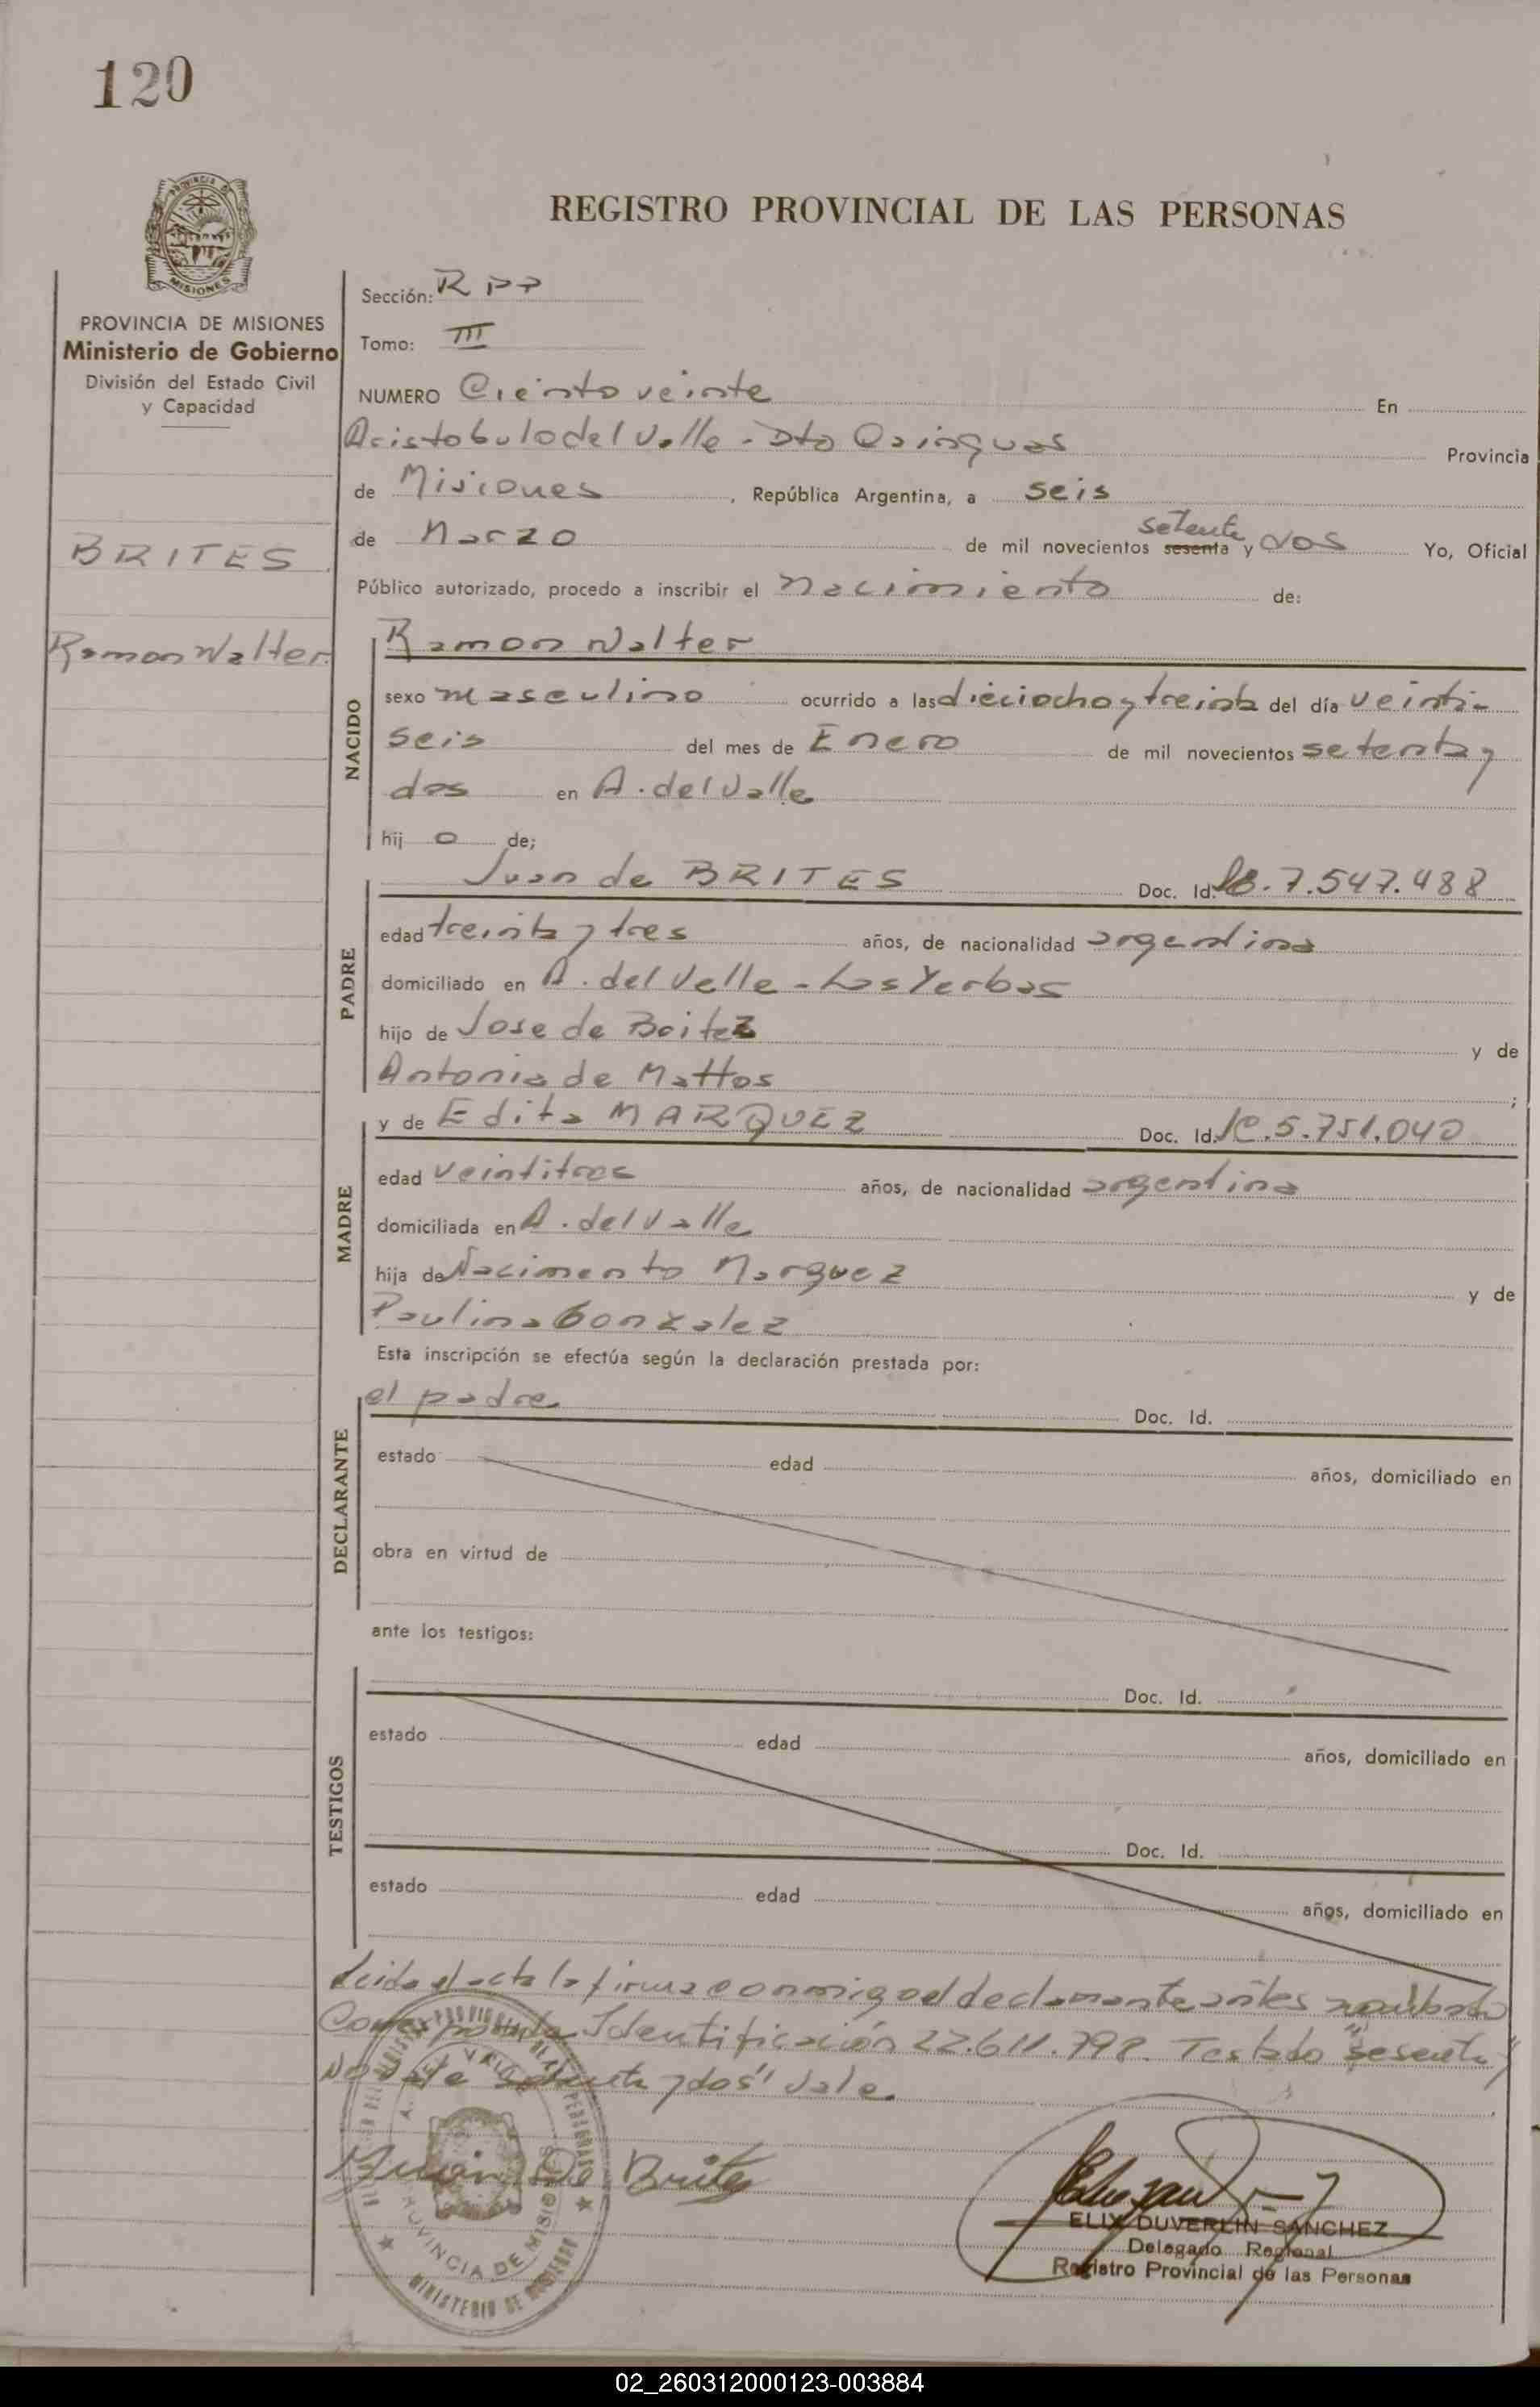 120
REGISTRO PROVINCIAL DE LAS PERSONAS
MISIONES
PROVINCIA DE MISIONES
Ministerio de Gobierno
División del Estado Civil
y Capacidad
BRITES
Ramon Walter
Sección: R P P
Tomo: III
NUMERO Ciento veinte En
Aristobulo del Valle - Dto Cainguas Provincia
de Misiones, República Argentina, a seis
de Marzo de mil novecientos sesenta setenta y dos Yo, Oficial
Público autorizado, procedo a inscribir el Nacimiento de:
NACIDO
Ramon Walter
sexo masculino ocurrido a las dieciocho y treinta del día veinti-
seis del mes de Enero de mil novecientos setenta y
dos en A. del Valle
hijo de;
PADRE
Juan de BRITES Doc. Id. 7.547.488
edad treinta y tres años, de nacionalidad argentina
domiciliado en A. del Valle - Las Yerbas
hijo de Jose de Britez y de
Antonia de Mattos ;
MADRE
y de Edita MARQUEZ Doc. Id. LC. 5.751.040
edad veintitres años, de nacionalidad argentina
domiciliada en A. del Valle
hija de Nacimento Marquez y de
Paulina Gonzalez
Esta inscripción se efectúa según la declaración prestada por:
DECLARANTE
el padre Doc. Id.
estado edad años, domiciliado en
obra en virtud de
ante los testigos:
TESTIGOS
Doc. Id.
estado edad años, domiciliado en
Doc. Id.
estado edad años, domiciliado en
Leida el acta la firma conmigo el declarante antes nombrado
Corresponde Identificación 22.611.798. Testado "sesenta"
No vale "setenta y dos" Vale.
Juan De Brites
PROVINCIA DE MISIONES
ELIX DUVERLIN SANCHEZ
Delegado Regional
Registro Provincial de las Personas
02_260312000123-003884